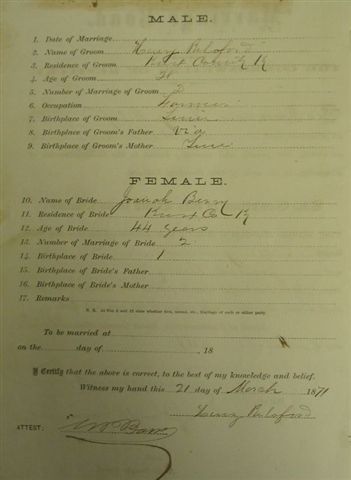 MALE.
1. Date of Marriage
2. Name of Groom Henry Pulaford
3. Residence of Groom
4. Age of Groom
5. Number of Marriage of Groom 2
6. Occupation Farmer
7. Birthplace of Groom
8. Birthplace of Groom's Father Va
9. Birthplace of Groom's Mother
FEMALE.
10. Name of Bride Josiah Berry
11. Residence of Bride Co Ky
12. Age of Bride 44 years
13. Number of Marriage of Bride 2
14. Birthplace of Bride 1
15. Birthplace of Bride's Father
16. Birthplace of Bride's Mother
17. Remarks
N. B. At Nos. 5 and 13 state whether first, second, etc., Marriage of each or either party
To be married at
on the day of , 18
I Certify that the above is correct, to the best of my knowledge and belief.
Witness my hand this 21 day of March 1871
Henry Pulaford
ATTEST: